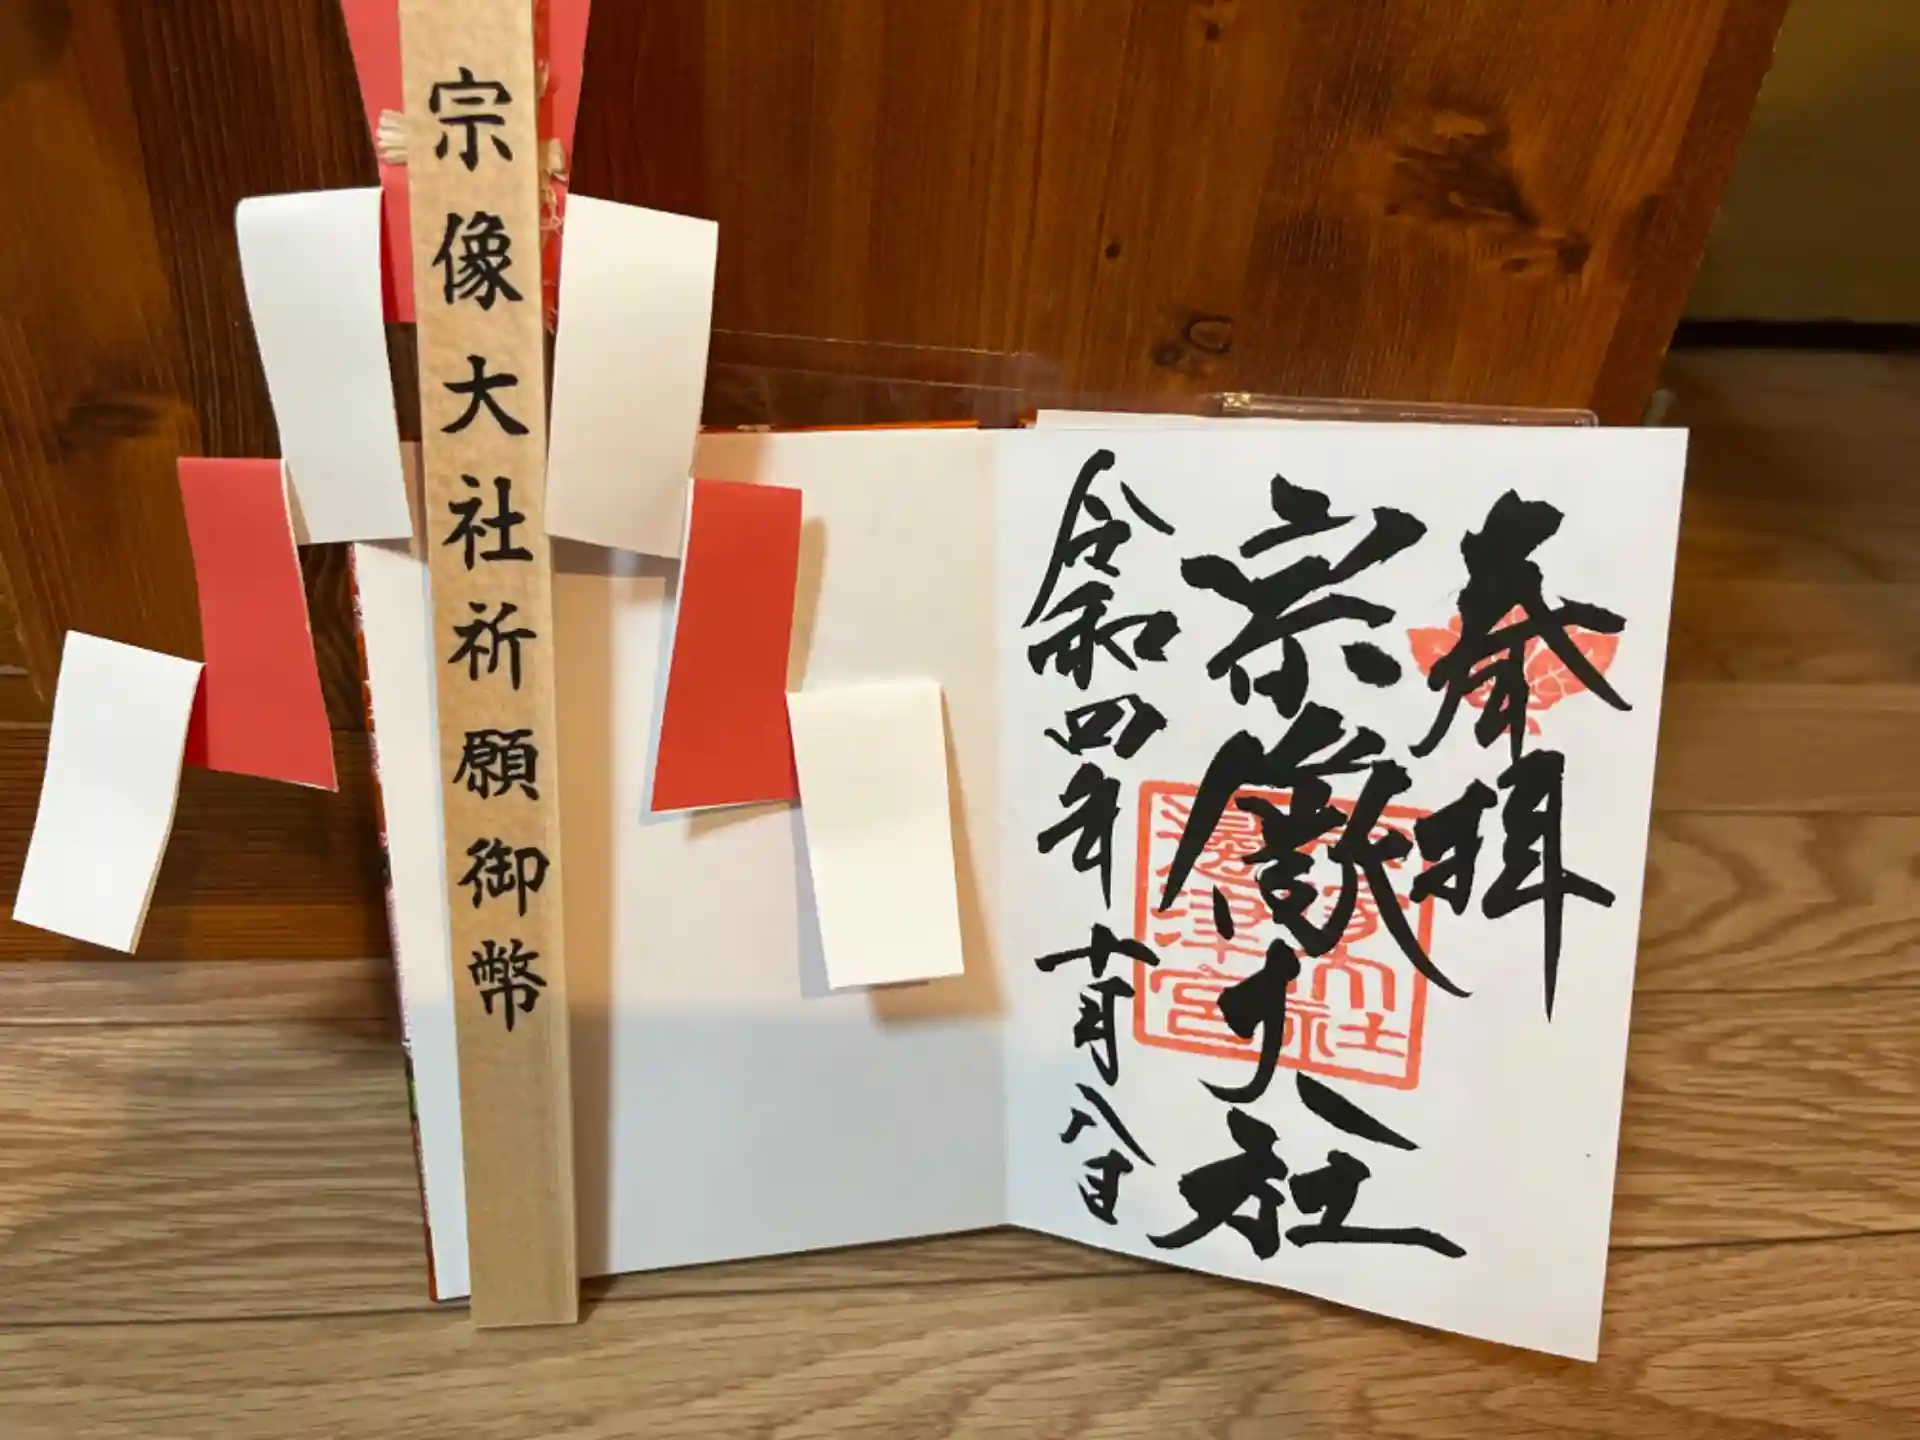 宗像大社祈願御幣
奉拝
宗像大社
令和四年十月八日
宗像大社
邊津宮